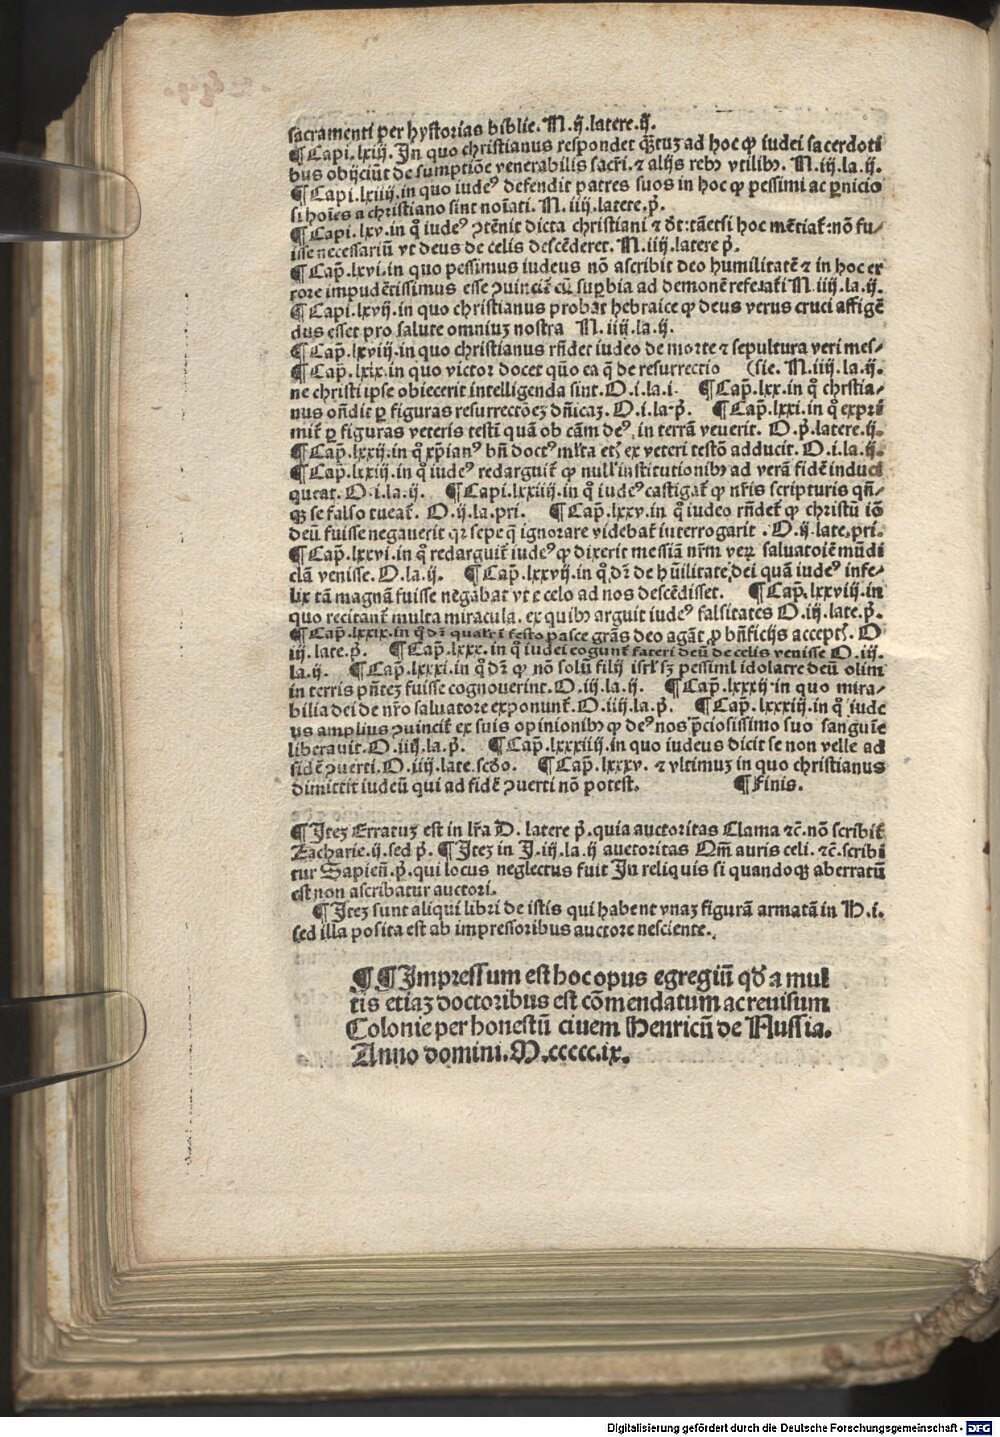 sacramenti per hystorias biblie. N. ij. latere. ij.
¶ Capi. lxiij. In quo christianus respondet q̄stuꝫ ad hoc ꝙ iudei sacerdoti
bus obijciūt de sumptiōe venerabilis sacrī. ⁊ alijs rebꝰ vtilibꝰ. N. iij. la. ij.
¶ Capi. lxiiij. in quo iudeꝰ defendit patres suos in hoc ꝙ pessimi ac ꝑnicio
si hoīes a christiano sint noīati. N. iiij. latere. p̄.
¶ Capi. lxv. in q̊ iudeꝰ ꝯtēnit dicta christiani ⁊ dt: tāetsi hoc mētiat̄: nō fu⸗
isse necessariū vt deus de celis descēderet. N. iiij. latere p̄.
¶ Cap̄. lxvi. in quo pessimus iudeus nō ascribit deo humilitatē ⁊ in hoc er
rore impudētissimus esse ꝯuincit̄ cū suꝑbia ad demonē referat̄ N. iiij. la. ij.
¶ Capi. lxvij. in quo christianus probat hebraice ꝙ deus verus cruci affigē
dus esset pro salute omniuꝫ nostra N. iiij. la. ij.
¶ Cap̄. lxviij. in quo christianus rn̄det iudeo de morte ⁊ sepultura veri mes⸗
¶ Cap̄. lxix. in quo victor docet quō ea q̄ de resurrectio (sie. N. iiij. la. ij.
ne christi ipse obiecerit intelligenda sint. O. i. la. i. ¶ Cap̄. lxx. in q̊ chrstia⸗
nus on̄dit ꝑ figuras resurrectōeꝫ dn̄icaꝫ. O. i. la. p̄. ¶ Cap̄. lxxi. in q̊ expri
mit̄ ꝑ figuras veteris testī quā ob cām deꝰ, in terrā veuerit. O. p̄. latere. ij.
¶ Cap̄. lxxij. in q̊ xp̄ianꝰ bn̄ doctꝰ ml̄ta et ex veteri testō adducit. O. i. la. ij.
¶ Cap̄. lxxiij. in q̊ iudeꝰ redarguit̄ ꝙ null institutionibꝰ ad verā fidē induci
queat. O. i. la. ij. ¶ Capi. lxxiiij. in q̊ iudeꝰ castigat̄ ꝙ nr̄is scripturis qn̄⸗
qꝫ se falso tueat̄. O. ij. la. pri. ¶ Cap̄. lxxv. in q̊ iudeo rn̄det̄ ꝙ christū iō
deū fuisse negauerit qꝛ sepe q̄ ignorare videbat̄ interrogarit. O. ij. late. pri.
¶ Cap̄. lxxvi. in q̊ redarguit̄ iudeꝰ ꝙ dixerit messiā nr̄m veꝝ saluatoiē mūdi
clā venisse. O. la. ij. ¶ Cap̄. lxxvij. in q̊ dꝛ̄ de hūilitate dei quā iudeꝰ infe⸗
lix tā magnā fuisse negabat vt e celo ad nos descēdisset. ¶ Cap̄. lxxviij. in
quo recitant̄ multa miracula. ex quibꝰ arguit iudeꝰ falsitates O. iij. late. p̄.
¶ Cap̄. lxxix. in q̊ dꝛ̄ quali ī festo pasce grās deo agāt̄ ꝓ bn̄ficijs accept. O
iij. late. p̄. ¶ Cap̄. lxxx. in q̊ iudei cogunt̄ fateri deū de celis venisse O. iij.
la. ij. ¶ Cap̄. lxxxi. in q̊ dꝛ̄ ꝙ nō solū filij isrl sꝫ pessimi idolatre deū olim
in terris pn̄teꝫ fuisse cognouerint. O. iij. la. ij. ¶ Cap̄. lxxxij in quo mira⸗
bilia dei de nr̄o saluatore exponunt̄. O. iiij. la. p̄. ¶ Cap̄. lxxxiij. in q̊ iude
us amplius ꝯuincit̄ ex suis opinionibꝰ ꝙ deꝰ nos p̄ciosissimo suo sanguīe
liberauit. O. iiij. la. p̄. ¶ Cap̄. lxxxiiij. in quo iudeus dicit se non velle ad
fidē ꝯuerti. O. iiij. late. scd̄o. ¶ Cap̄. lxxxv. ⁊ vltimuꝫ in quo christianus
dimittit iudeū qui ad fidē ꝯuerti nō potest. ¶ Finis.
¶ Iteꝫ Erratuꝫ est in lr̄a D. latere p̄. quia auctoritas Clama ⁊c̄. nō scribit̄
Zacharie. ij. sed p̄. ¶ Iteꝫ in I. iij. la. ij auctoritas Qm̄ auris celi. ⁊c̄. scribi
tur Sapien̄. p̄. qui locus neglectus fuit In reliquis si quandoqꝫ aberratū
est non ascribatur auctori.
¶ Iteꝫ sunt aliqui libri de istis qui habent vnaꝫ figurā armatā in H. i.
sed illa posita est ab impressoribus auctore nesciente.
¶ ¶ Impressum est hoc opus egregiū qd̄ a mul
tis etiaꝫ doctoribus est cōmendatum ac reuisum
Colonie per honestū ciuem Henricū de Nussia.
Anno domini. M. ccccc. ix.
Digitalisierung gefördert durch die Deutsche Forschungsgemeinschaft - DFG